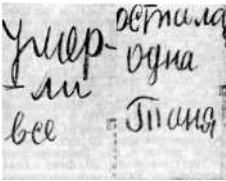 умер-
-ли
все
остпала
одна
Таня